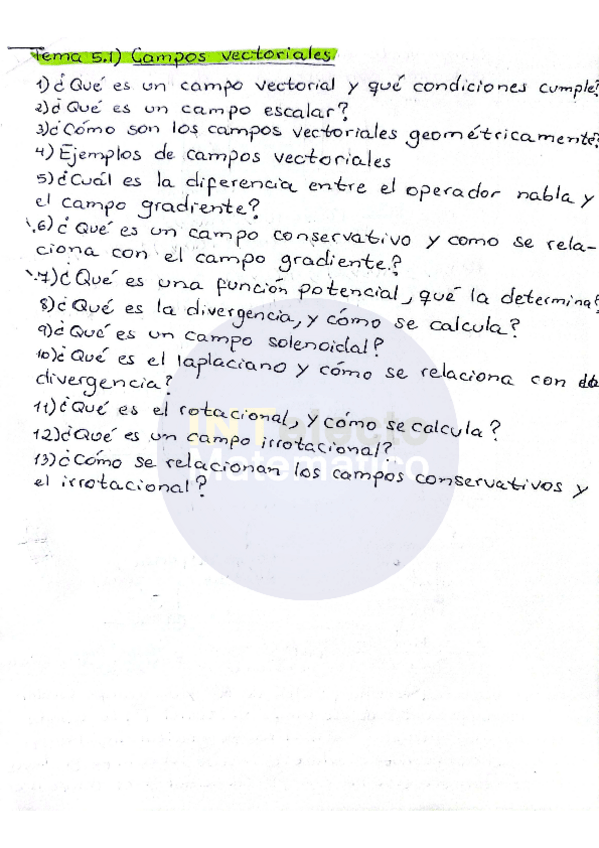 Tema 5.1) Campos vectoriales
1) ¿Qué es un campo vectorial y qué condiciones cumple?
2) ¿Qué es un campo escalar?
3) ¿Cómo son los campos vectoriales geométricamente?
4) Ejemplos de campos vectoriales
5) ¿Cuál es la diferencia entre el operador nabla y
el campo gradiente?
6) ¿Qué es un campo conservativo y como se rela-
ciona con el campo gradiente?
7) ¿Qué es una función potencial, qué la determina?
8) ¿Qué es la divergencia, y cómo se calcula?
9) ¿Qué es un campo solenoidal?
10) ¿Qué es el laplaciano y cómo se relaciona con la
divergencia?
11) ¿Qué es el rotacional, y cómo se calcula?
12) ¿Qué es un campo irrotacional?
13) ¿Cómo se relacionan los campos conservativos y
el irrotacional?
INTelecto
Matemático